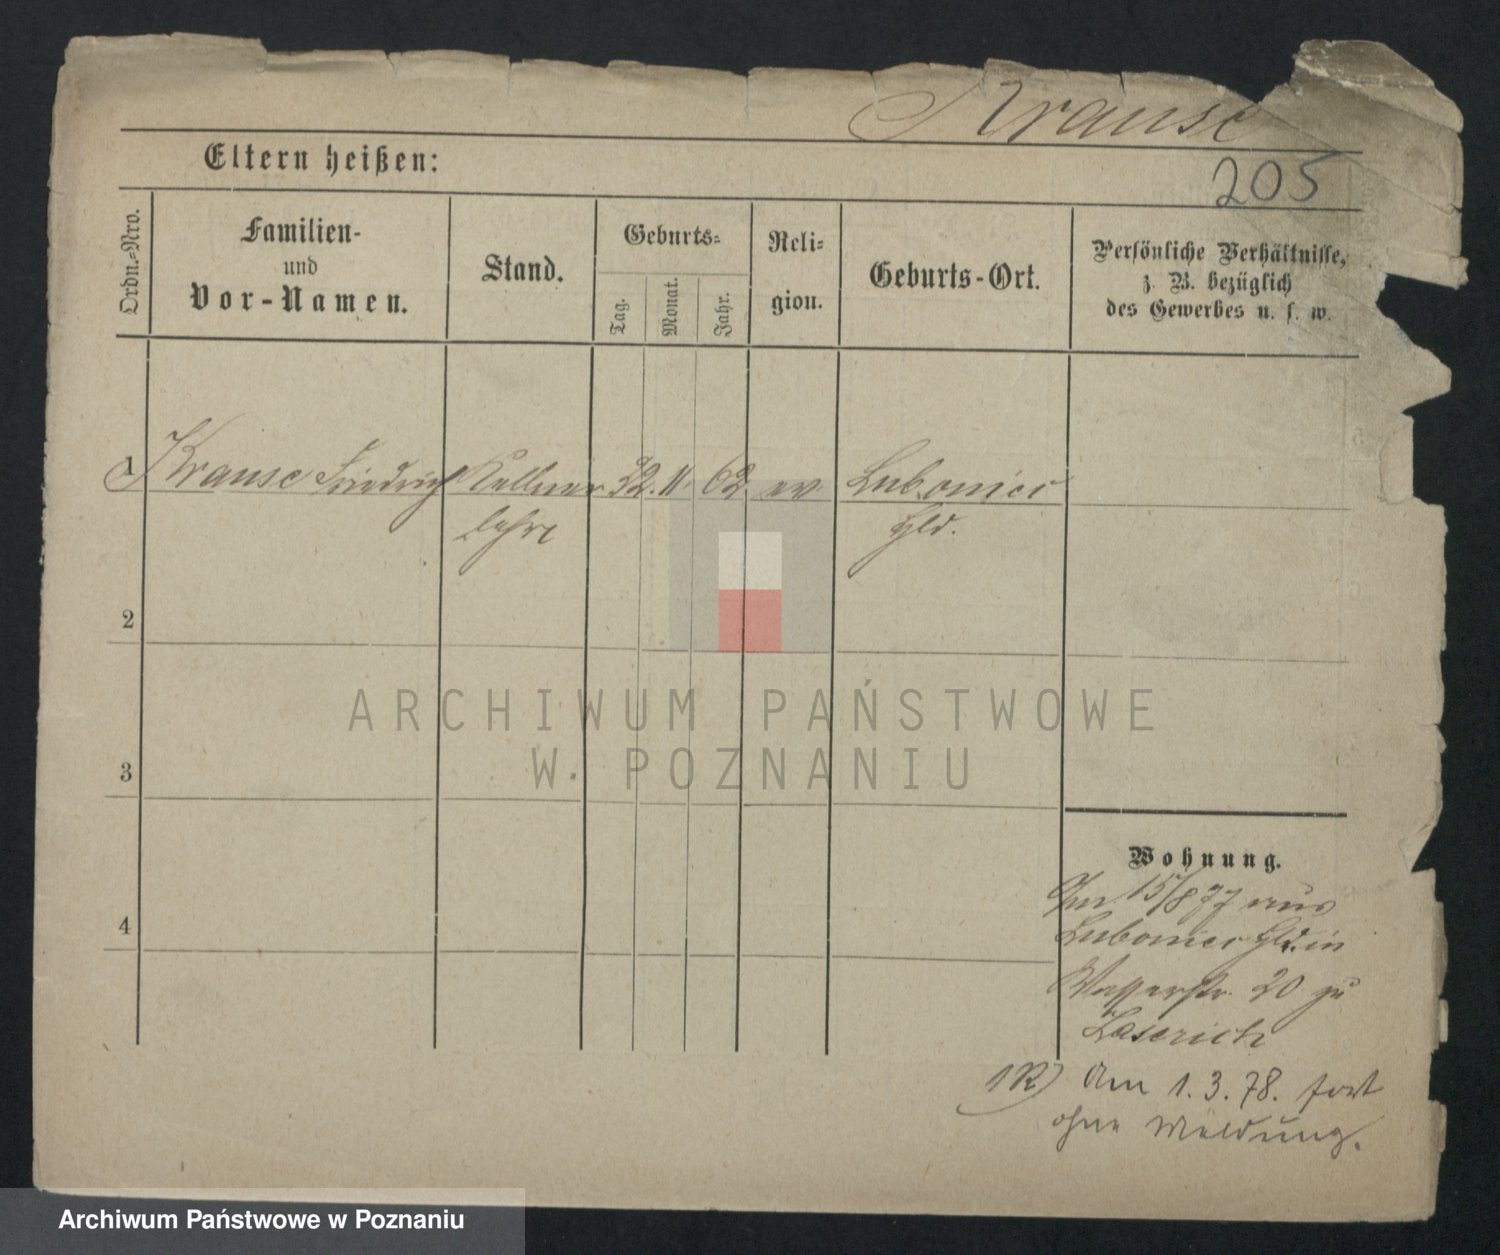 Krause
Eltern heißen:
205
Ordn.-Nro.
Familien-
und
Vor-Namen.
Stand.
Geburts-
Tag.
Monat.
Jahr.
Reli-
gion.
Geburts-Ort.
Persönliche Verhältnisse,
z. B. bezüglich
des Gewerbes u. s. w.
1 Krause Friedrich Kellner 22. 11. 62 ev
lehrl
2
3
4
ARCHIWUM PAŃSTWOWE
W POZNANIU
Wohnung.
15/8 77 aus
in
Wasserstr. 20 zu
Am 1.3.78. fort
ohne Meldung.
Archiwum Państwowe w Poznaniu